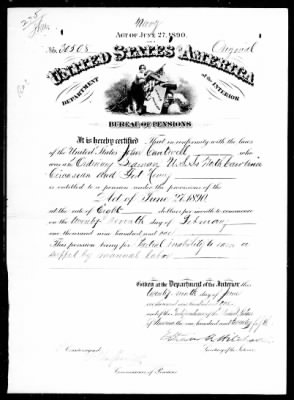 Navy
ACT OF JUNE 27, 1890.
Original
UNITED STATES OF AMERICA
DEPARTMENT of the INTERIOR
BUREAU OF PENSIONS
It is hereby certified That in conformity with the laws
of the United States John Cantwell who
was a Ordinary Seaman U.S.S. North Carolina
and Fort Henry
is entitled to a pension under the provisions of the
Act of June 27, 1890
at the rate of Eight dollars per month to commence
on the twenty seventh day of February
one thousand nine hundred and one
This pension being for Partial inability to earn a
support by manual labor
Given at the Department of the Interior this
twenty ninth day of June
one thousand nine hundred and one
and of the Independence of the United States
of America the one hundred and twenty fifth
Secretary of the Interior
Countersigned
Commissioner of Pensions